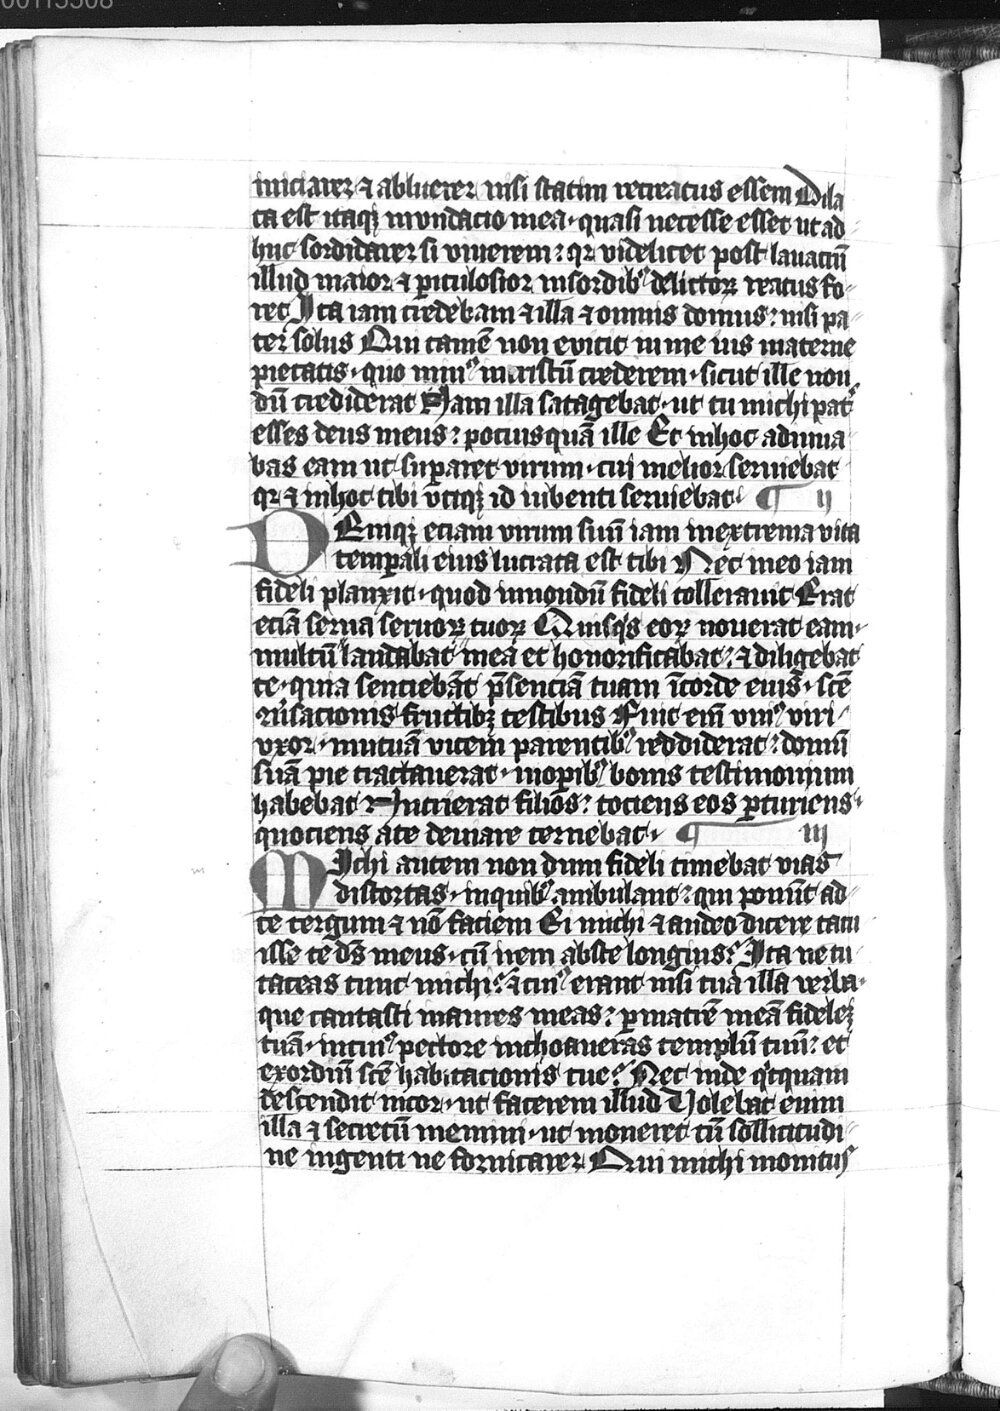 00113508
iniciarer ⁊ abluerer nisi statim recreatus essem Dila
ta est itaqꝫ mundacio mea · quasi necesse esset ut ad
huc sordidarer si viuerem : qr videlicet post lauacrū
illud maior ⁊ ꝑiculosior in sordibꝰ delictoꝝ reatus fo
ret Ita iam credebam ⁊ illa ⁊ omnis domus : nisi pa
ter solus Qui tamē non euicit in me ius materne
pietatis · quo minꝰ in cristū crederem · sicut ille non
dū crediderat Nam illa satagebat · ut tu michi pat̄
esses deus meus : pocius quā ille Et in hoc adiuua
bas eam ut suꝑaret virum · cui melior seruiebat
qr ⁊ in hoc tibi vtiqꝫ id iubenti seruiebat · ¶ ij
DEniqꝫ etiam virum suū iam in extrema vita
temꝑali eius lucrata est tibi Nec in eo iam
fideli planxit · quod in nondū fideli tollerauit Erat
eciā serua seruoꝝ tuoꝝ Quisqͥs eoꝝ nouerat eam ·
multū laudabat in ea et honorificabat : ⁊ diligebat
te · quia senciebāt p̄senciā tuam ī corde eius · scē
ꝯuersacionis fructibꝫ testibus Fuit em̄ vniꝰ viri
vxor · mutuā vicem parentibꝰ reddiderat : domū
suā pie tractauerat · in opibꝰ bonis testimonium
habebat Nutrierat filios : tociens eos ꝑturiens ·
quociens a te deuiare cernebat · ¶ iij
MIchi autem non dum fideli timebat vias
distortas · in quibꝰ ambulant : qui ponūt ad
te tergum ⁊ nō faciem Ei michi ⁊ audeo dicere tacu
isse te dš meus · cū irem abs te longius : Ita ne tu
taceas tunc michi : ⁊ cuiꝰ erant nisi tua illa verba ·
que cantasti in aures meas : ꝑ matrē meā fidelē
tuā · in cuiꝰ pectore inchoaueras templū tuū : et
exordiū scē habitacionis tue : Nec inde qͥcquam
descendit in cor · ut facerem illud Uolebat enim
illa ⁊ secretū memini · ut moneret cū sollicitudi
ne ingenti ne fornicarer Qui michi monitus